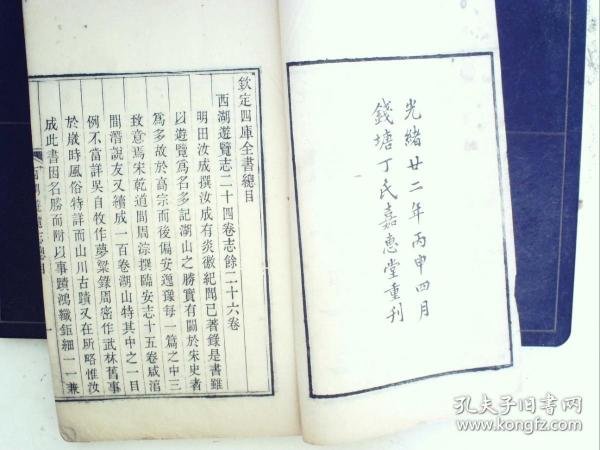 光緒廿二年丙申四月
錢塘丁氏嘉惠堂重刊
欽定四庫全書總目
西湖遊覽志二十四卷志餘二十六卷
明田汝成撰汝成有炎徼紀聞已著錄是書雖
以遊覽爲名多記湖山之勝實有關於宋史者
爲多故於高宗而後偏安逸豫每一篇之中三
致意焉宋乾道間周淙撰臨安志十五卷咸淳
間潛說友又續成一百卷湖山特其中之一目
例不當詳吳自牧作夢粱錄周密作武林舊事
於歲時風俗特詳而山川古蹟又在所略惟汝
成此書因名勝而附以事蹟鴻纖鉅細一一兼
西湖遊覽志總目
一
孔夫子旧书网
www.kongfz.com